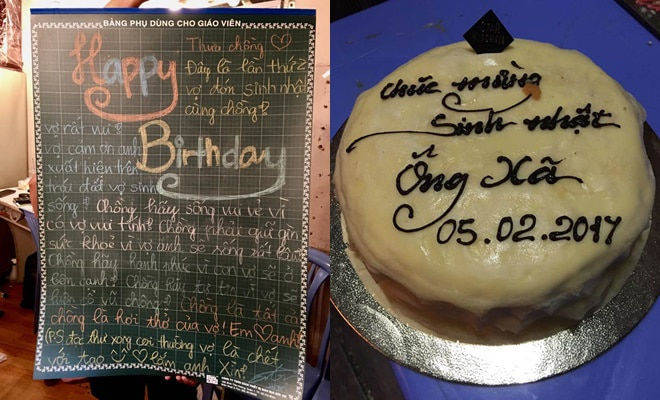 BẢNG PHỤ DÙNG CHO GIÁO VIÊN
Happy
Birthday
Thưa chồng ♡
Đây là lần thứ 2
vợ đón sinh nhật
cùng chồng?
vợ rất vui?
vợ cảm ơn anh
xuất hiện trên
trái đất vợ sinh
sống? Chồng hãy sống vui vẻ vì
có vợ vui tính? Chồng phải giữ gìn
sức khỏe vì vợ anh sẽ sống rất
Chồng hãy hạnh phúc vì con vợ sẽ ở
bên cạnh? Chồng vợ sẽ
luôn vì chồng? Chồng là tất cả
chồng là hơi thở của vợ! Em ♡ anh!
(PS: đọc thư xong coi thường vợ là chết
với tao ♡ lắm anh Xin?
Chúc mừng
Sinh nhật
Ông Xã
05.02.2017